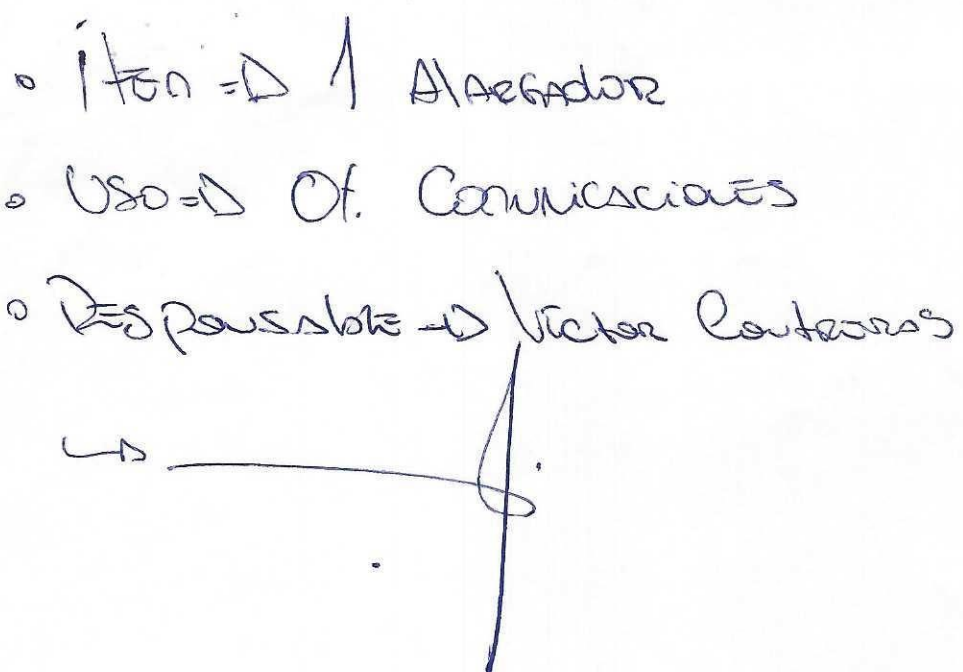 • Ítem => 1 Alargador
• Uso => Of. Comunicaciones
• Responsable => Víctor Contreras